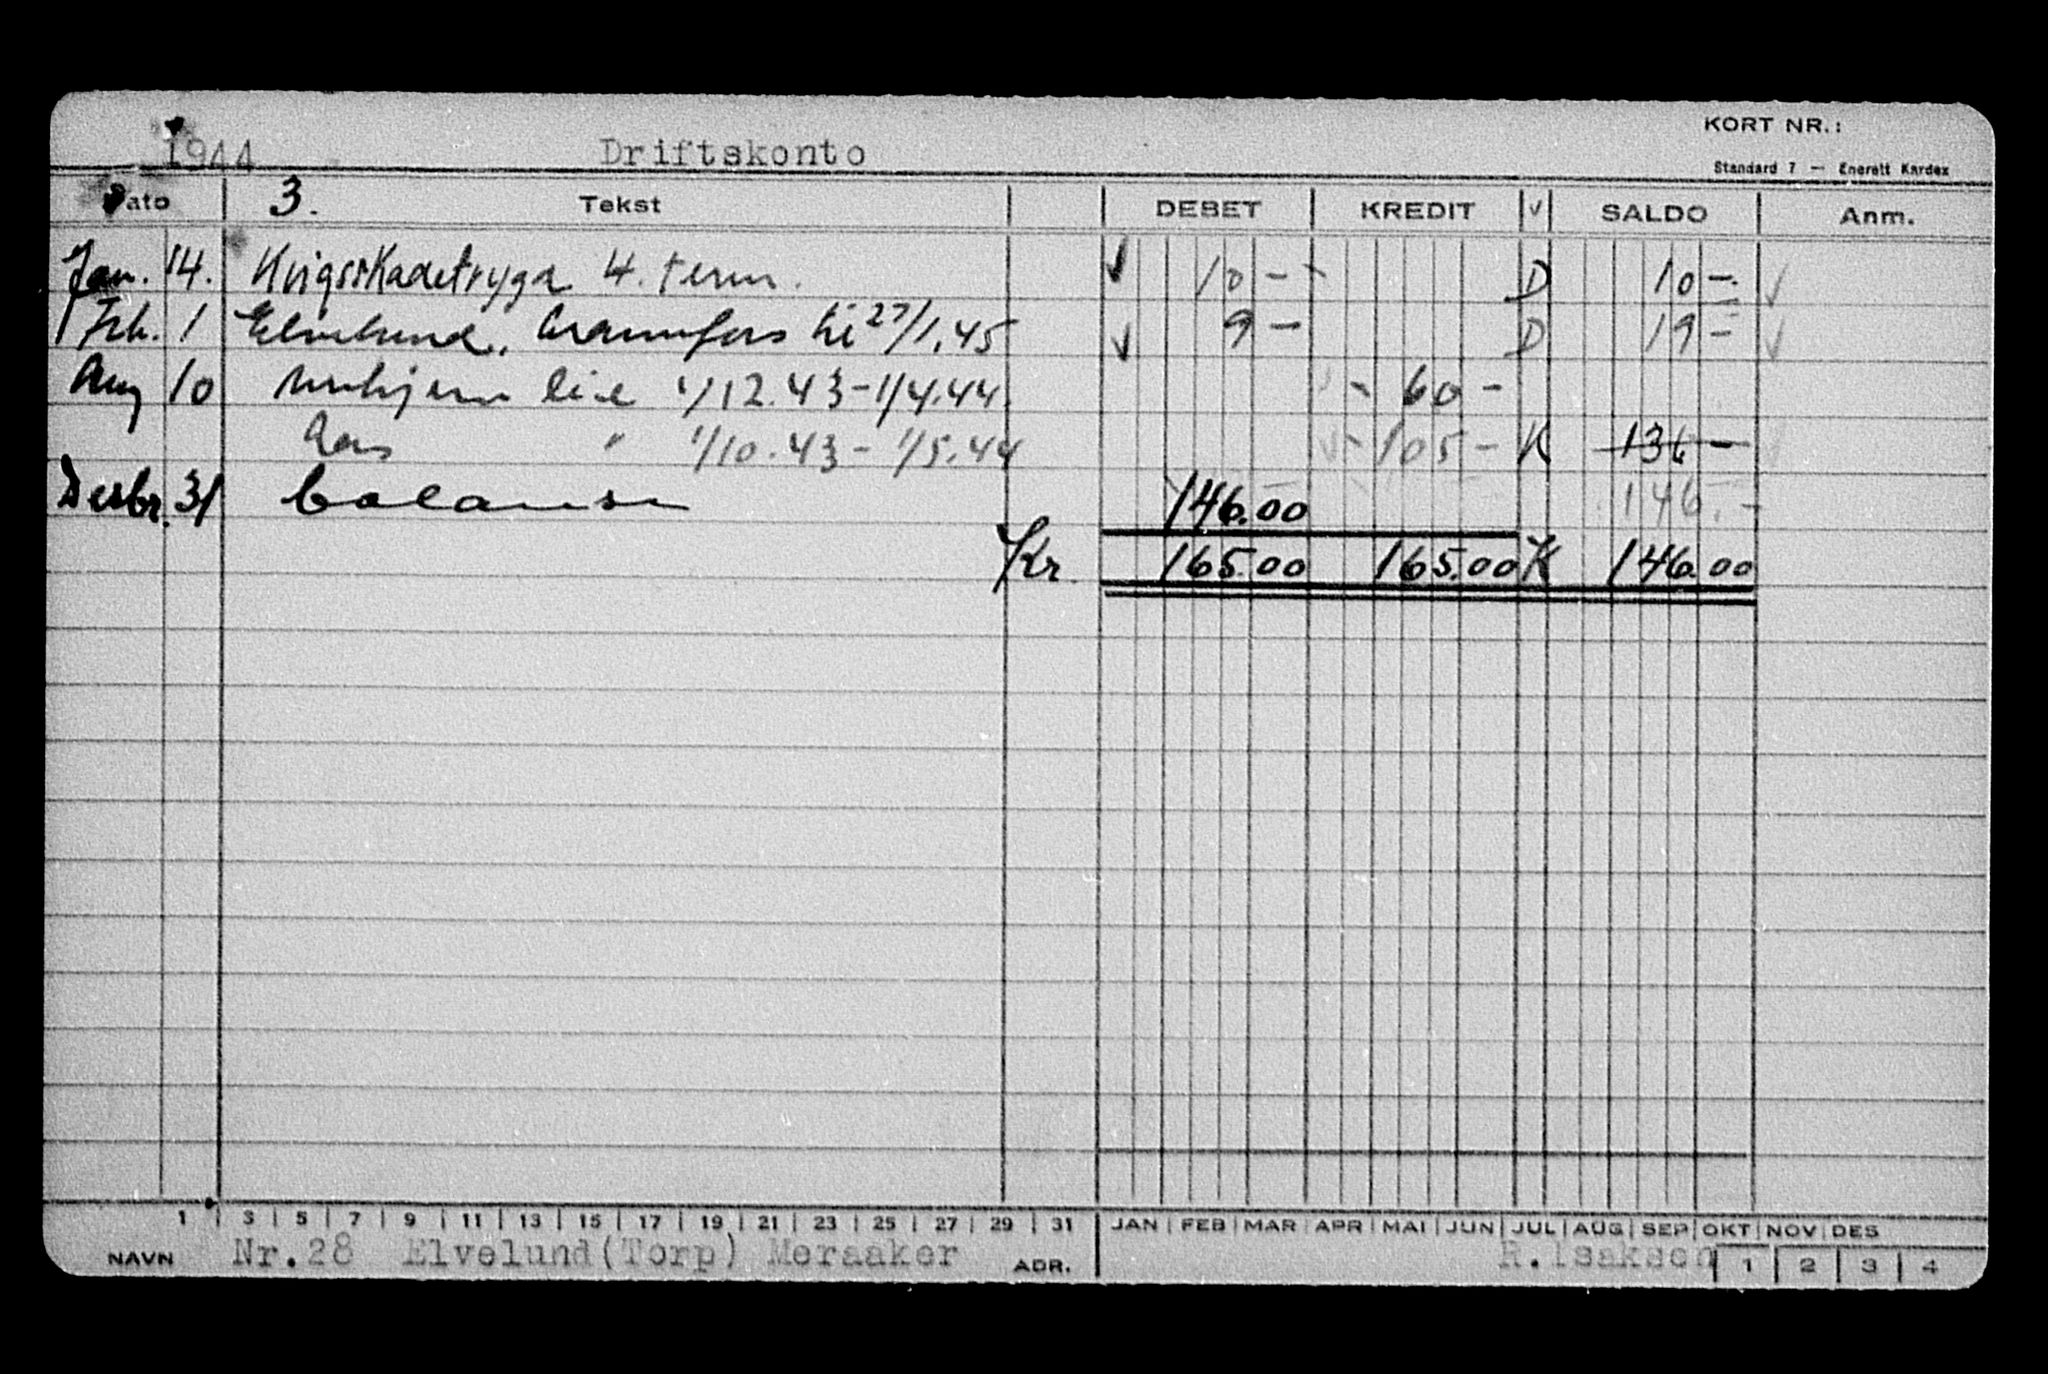 KORT NR.:
1944 Driftskonto
Standard 7 — Enerett Kardex
Dato 3. Tekst DEBET KREDIT √ SALDO Anm.
Jan. 14. Krigsskadetrygd 4. term. √ 10 - D 10 - √
Feb. 1 Elvelund, brannfors til 27/1.45 √ 9 - D 19 - √
Aug 10 leie 1/12.43 - 1/4.44 60 -
" 1/10.43 - 1/5.44 105 - K 136 -
Desbr. 31 balanse 146.00 146.-
Kr. 165.00 165.00 K 146.00
1 3 5 7 9 11 13 15 17 19 21 23 25 27 29 31 JAN FEB MAR APR MAI JUN JUL AUG SEP OKT NOV DES
NAVN Nr.28 Elvelund(Torp) Meraaker ADR. R.Isaksen 1 2 3 4